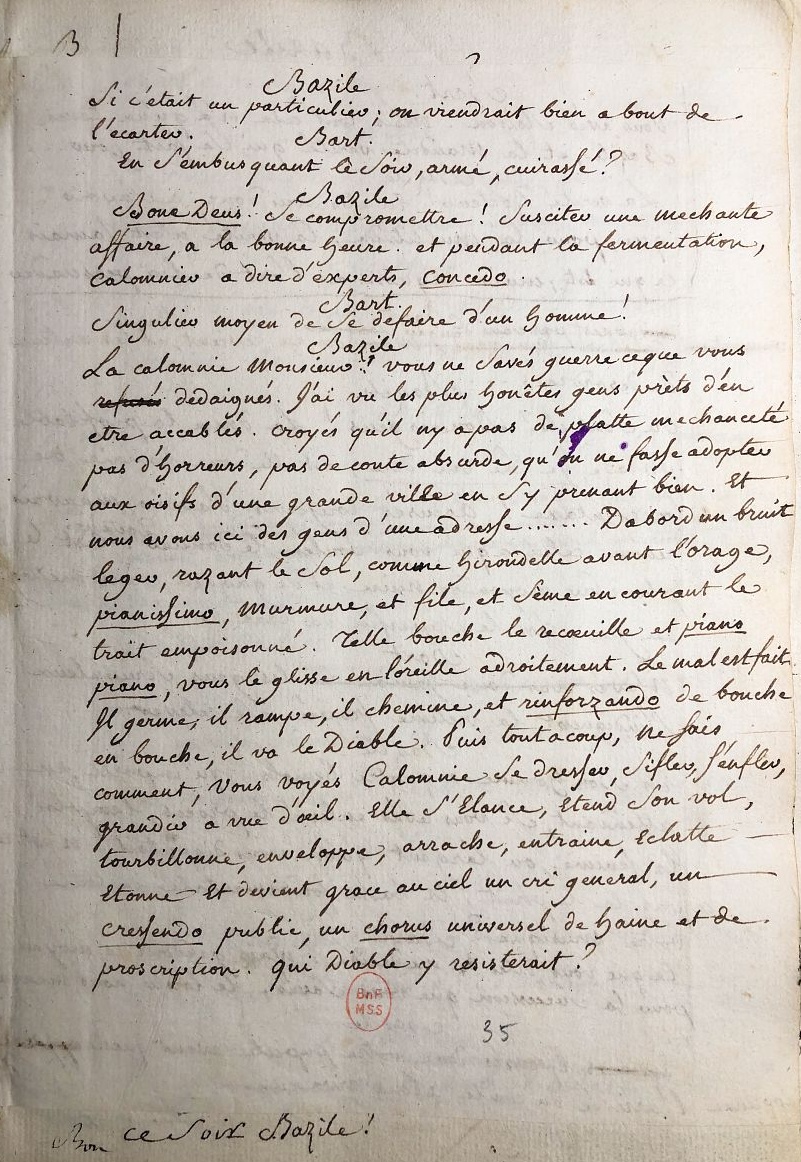 3
Bazile
Si c'était un particulier; on viendrait bien a bout de
l'ecarter.
Bart.
En S'embusquant le Soir, armé, cuirassé?
Bazile
Bone Deus! Se compromettre! Susciter une mechante
affaire, a la bonne heure. et pendant la fermentation,
Calomnier a dire d'éxperts, concedo.
Bart.
Singulier moyen de Se defaire d'un homme!
Bazile
La calomnie Monsieur! vous ne Savés guerre ceque vous
refusés dedaignés. J'ai vu les plus honêtes gens prèts d'én
etre accablés. croyés qu'il ny a pas de platte mechanceté
pas d'horreurs, pas de conte absurde, qu'on ne fasse adopter
aux oisifs d'une grande ville en S'y prenant bien. Et
nous avons ici des gens d'une adresse....... Dabord un bruit
leger, razant le Sol, comme hirondelle avant l'orage,
pianissimo, murmure, et file, et Sême en courant le
trait empoisonné. Telle bouche le recœuille et piano
piano, vous le glisse en l'oreille adroitement. Le mal est fait
Il germe, il rampe, il chemine, et rinforzando de bouche
en bouche, il va le Diable. Puis tout acoup, ne Sais
comment, vous voyés Calomnie Se dresser, Sifler, S'énfler,
grandir a vue d'œil. Elle S'Elance, Etend Son vol,
tourbillonne, enveloppe, arrache, entraine, Eclatte
Etonne Et devient grace au ciel un cri general, un
cressendo public, un chorus universel de haine et de
proscription. qui Diable y resisterait?
BnF
MSS
35
Bon ce Soir Bazile!